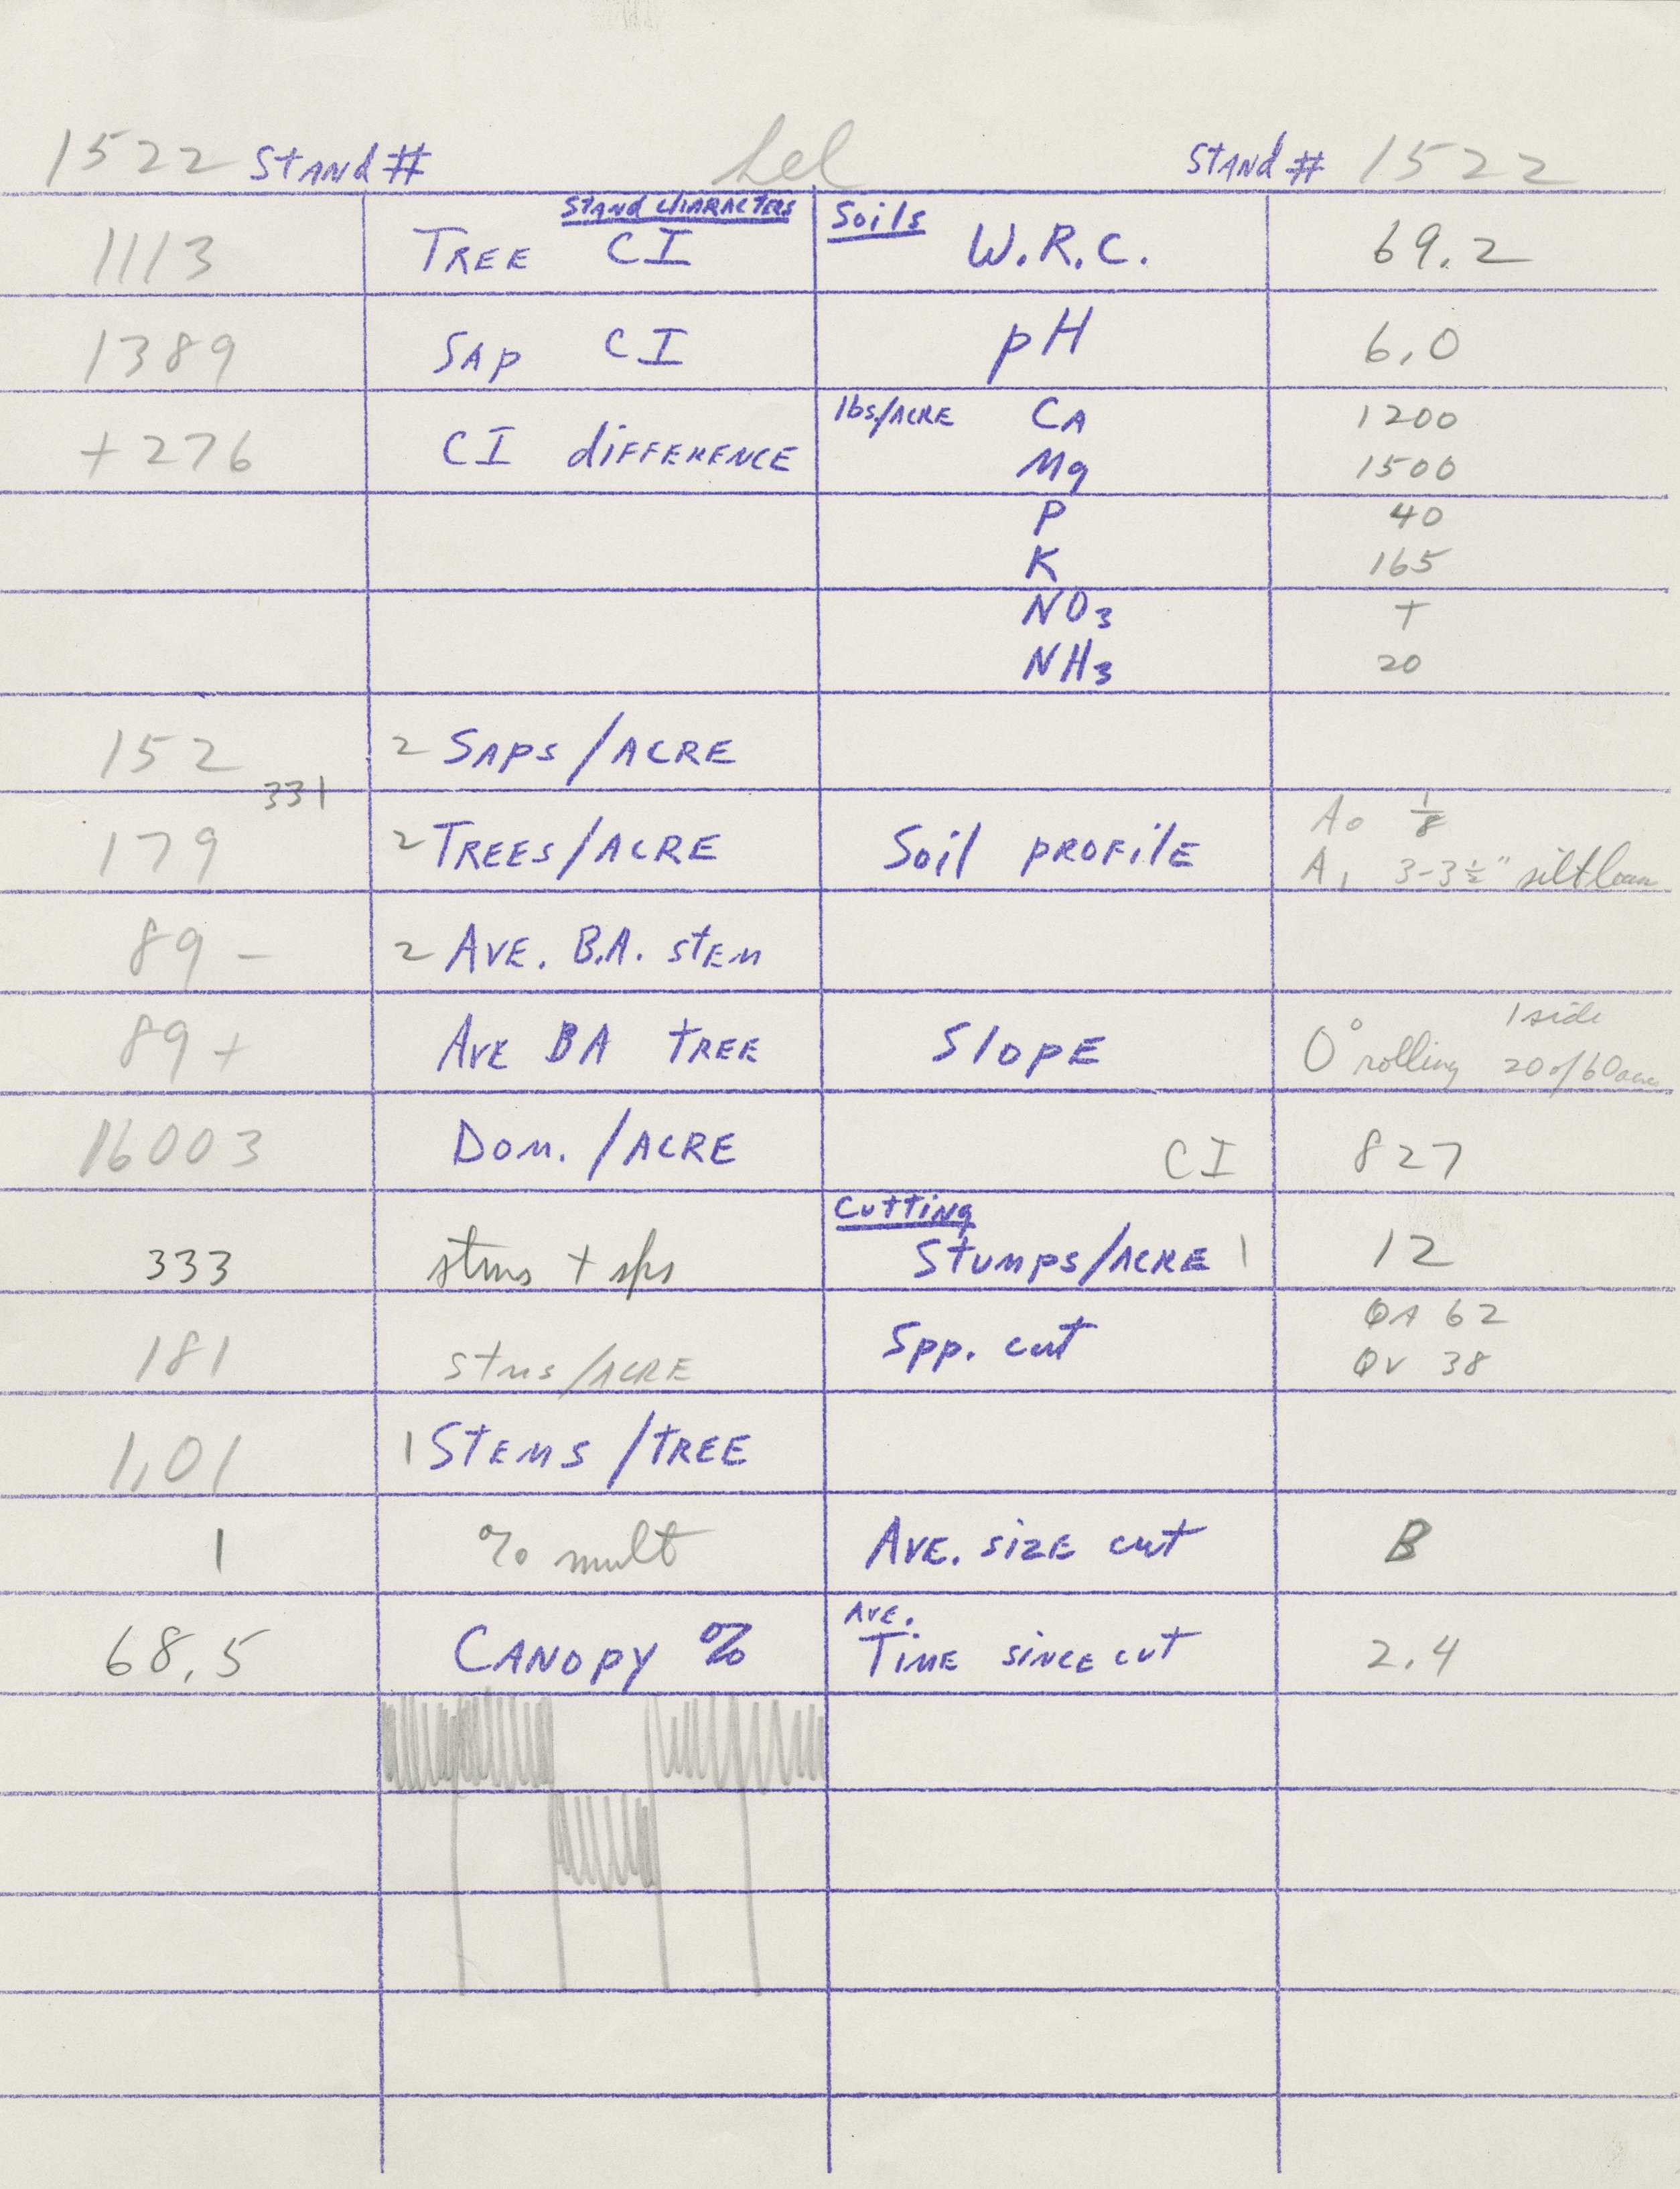 1522 Stand # Lel Stand # 1522
Stand Characters Soils
1113 Tree CI W.R.C. 69.2
1389 Sap CI pH 6.0
+276 CI difference lbs/Acre Ca 1200
Mg 1500
P 40
K 165
NO3 +
NH3 20
152 2 Saps/Acre
331
179 2 Trees/Acre Soil profile A0 1/8
A1 3-3½" silt loam
89 - 2 Ave. B.A. stem
89 + Ave BA tree Slope 0° rolling 1 side
20 of 60 acres
16003 Dom./Acre CI 827
Cutting
333 stms + sps Stumps/Acre 1 12
181 stms/Acre Spp. cut QA 62
QV 38
1.01 1 Stems/tree
1 % mult Ave. size cut B
68.5 Canopy % Ave. Time since cut 2.4